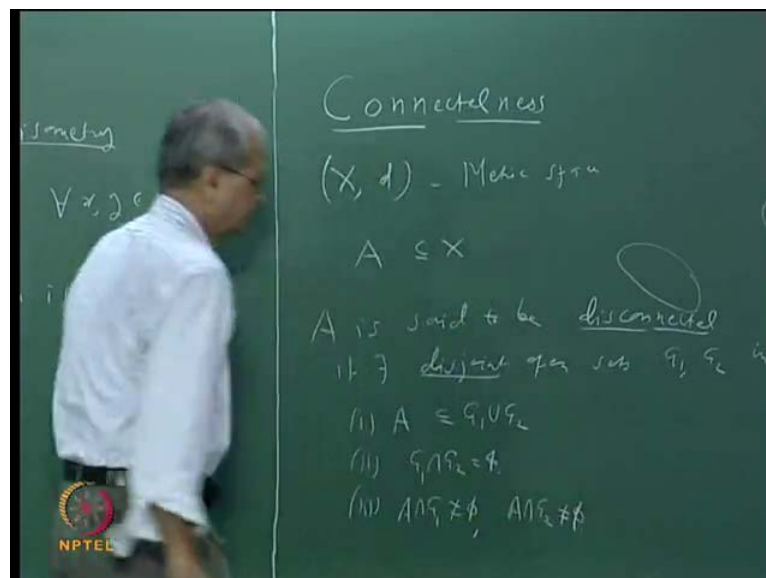 isometry
∀ x, y ∈
i
Connectedness
(X, d) - Metric space
A ⊆ X
A is said to be disconnected
if ∃ disjoint open sets G₁, G₂ in
(i) A ⊆ G₁ ∪ G₂
(ii) G₁ ∩ G₂ = ϕ
(iii) A ∩ G₁ ≠ ϕ, A ∩ G₂ ≠ ϕ
NPTEL